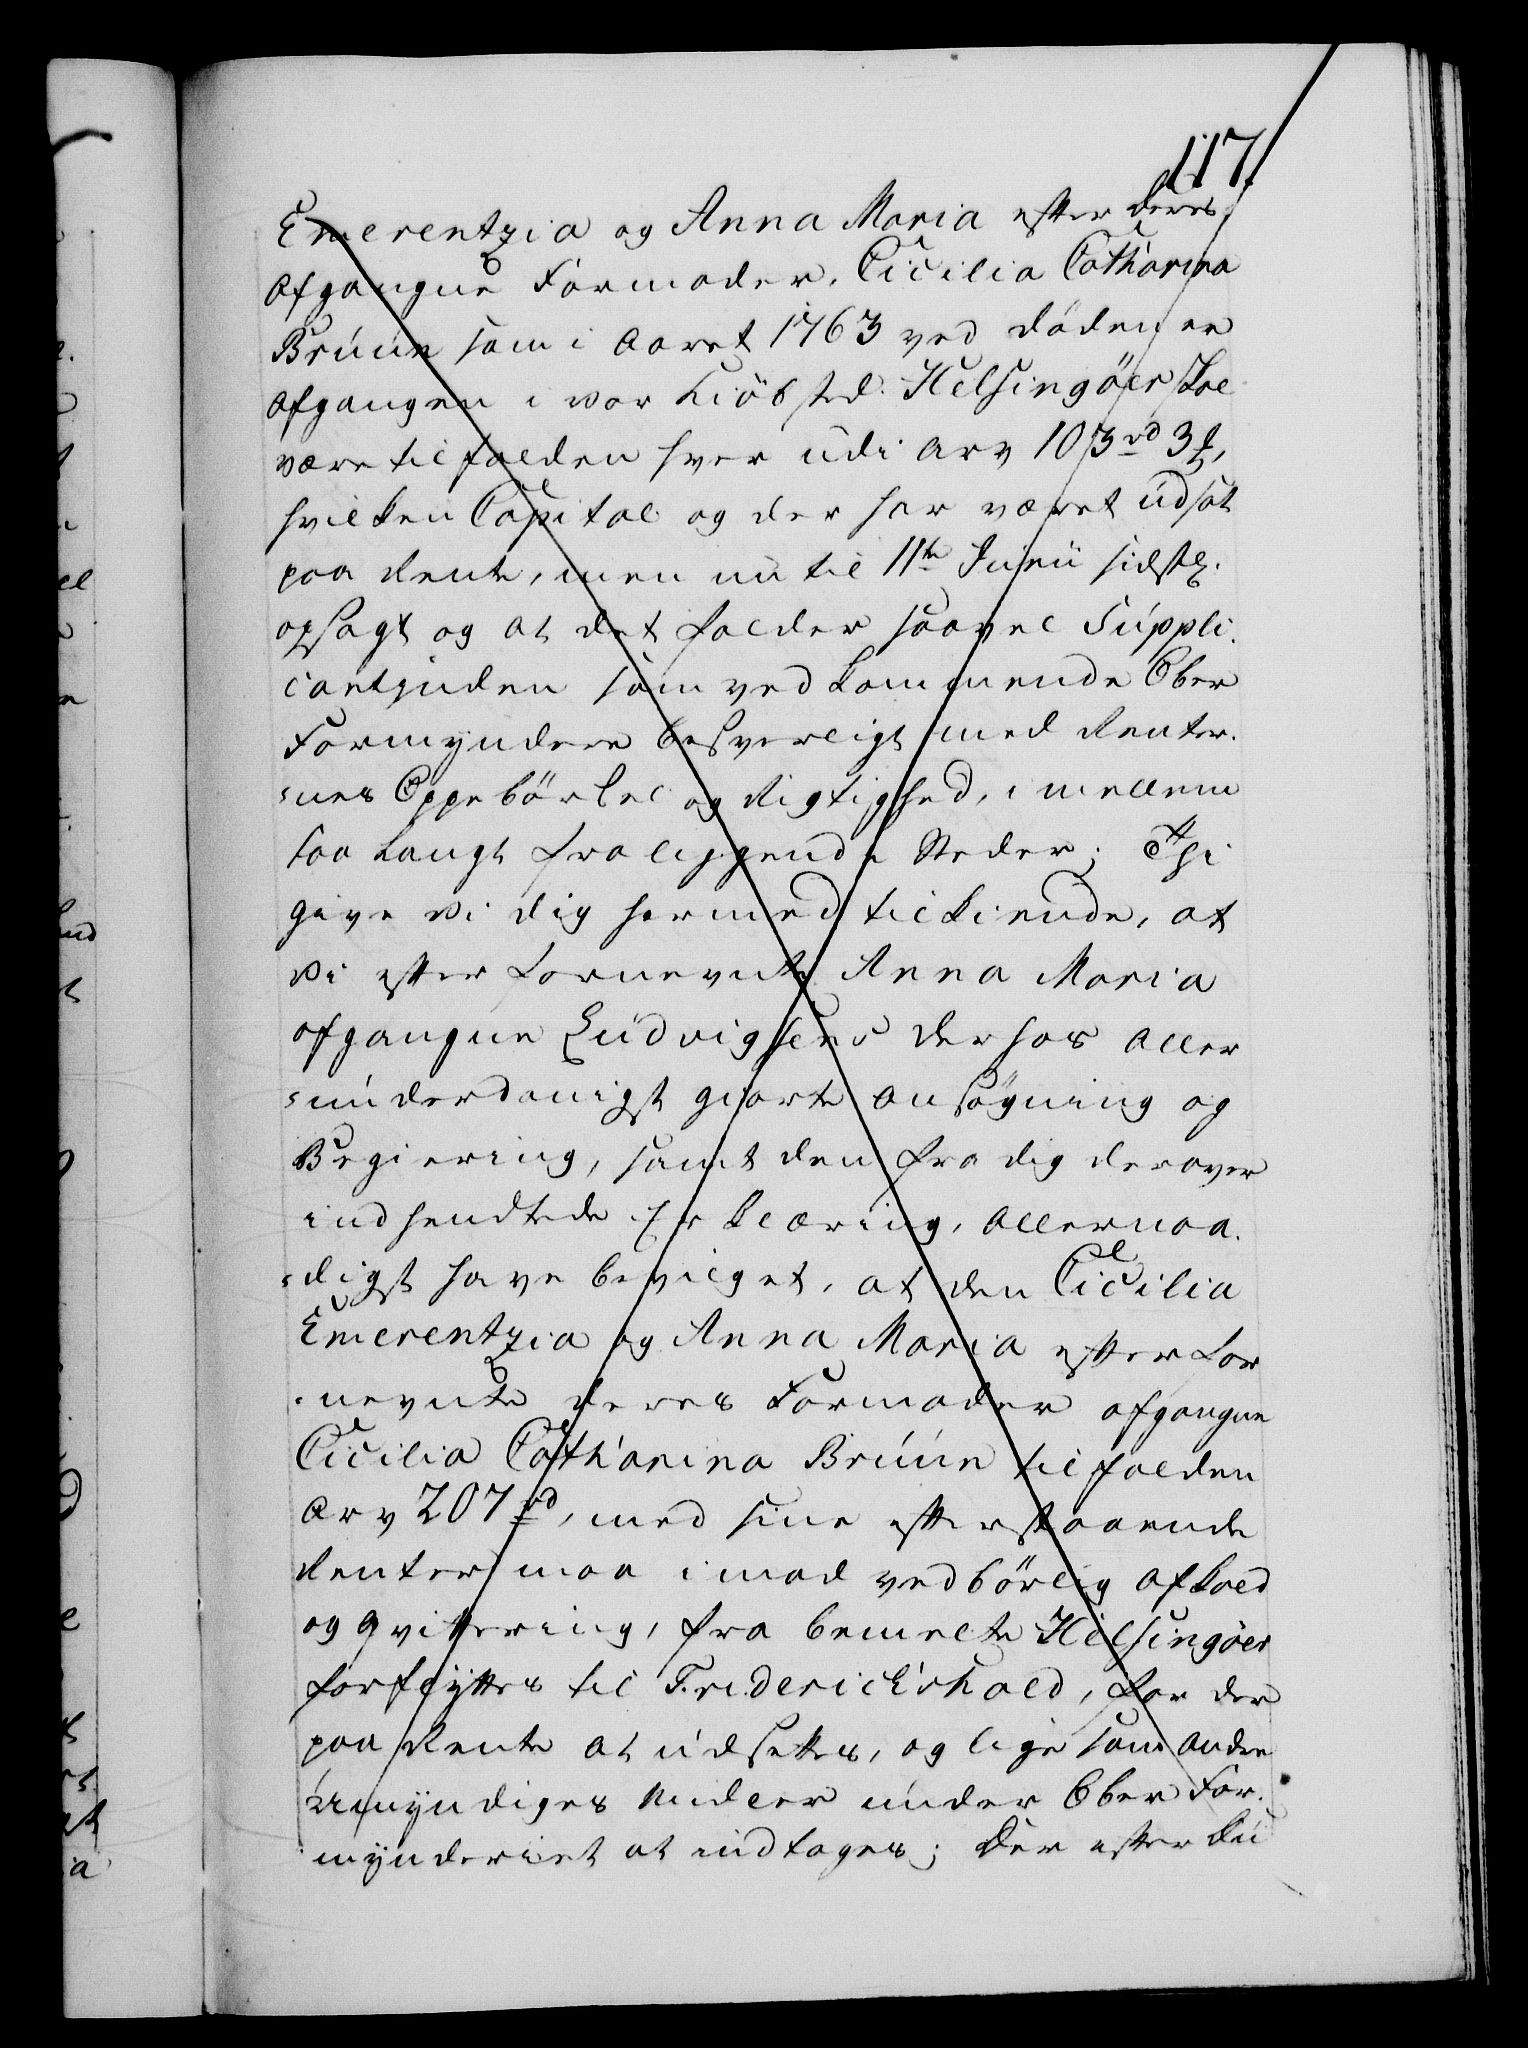 117.
Emerentzia og Anna Maria efter deres
afgangne Formoder, Cicilia Catharina
Brúún som i Aaret 1763 ved Döden er
afgangen i vor Kiöbsted Helsingöer skal
være tilfalden hver udi Arv 103 rd 3 ß,
hvilken Capital og der har været udsat
paa Rente, men nu til 11te Junii sidstl.
opsagt og at det falder saavel Suppli
cantinden som vedkommende Ober
Formyndere besverligt med Renter
=nes Oppebörsel og Rigtighed, i mellem
saa langt fraliggende Steder; Thi
give Vi dig hermed tilkiende, at
Vi efter fornevnte Anna Maria
afgangne Ludvigsens derhos aller
=underdanigst giorte Ansögning og
Begiering, samt den fra dig derover
indsendtede Erklæring, allernaa
=digst have bevilget, at den Cicilia
Emerentzia og Anna Maria efter for
=nevnte deres Formoder afgangne
Cicilia Catharina Brúún tilfalden
Arv 207 rd, med sine efterstaaende
Renter maa imod vedbörlig Afkald
og Qvittering, fra bemelte Helsingöer
forflyttes til Friderichshald, for der
paa Rente at udsettes, og lige som andre
Umyndiges Midler under Ober For
mynderiet at indtages; Der efter du